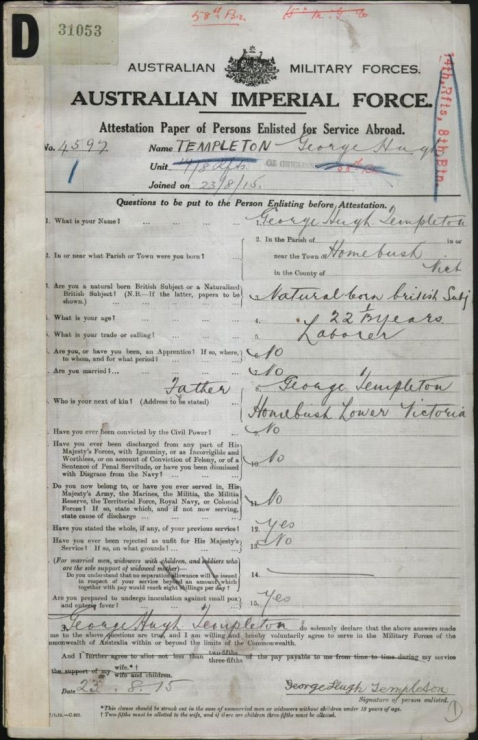 D
31053
58th Bn.
AUSTRALIAN MILITARY FORCES.
AUSTRALIAN IMPERIAL FORCE.
14th Rfts, 8th Btn.
Attestation Paper of Persons Enlisted for Service Abroad.
No. 4597 Name TEMPLETON George Hugh
Unit 14/8 Rfts.
Joined on 23/8/15.
Questions to be put to the Person Enlisting before Attestation.
1. What is your Name? ... ... ... George Hugh Templeton
2. In or near what Parish or Town were you born? ... 2. In the Parish of in or
near the Town of Homebush
in the County of Vict
3. Are you a natural born British Subject or a Naturalized
British Subject? (N.B.—If the latter, papers to be
shown.) Natural born british Subj
4. What is your age? 4. 22 1/2 years
5. What is your trade or calling? 5. Laborer
6. Are you, or have you been, an Apprentice? If so, where,
to whom, and for what period? No
7. Are you married? No
Father George Templeton
8. Who is your next of kin? (Address to be stated) Homebush Lower Victoria
9. Have you ever been convicted by the Civil Power? No
10. Have you ever been discharged from any part of His
Majesty's Forces, with Ignominy, or as Incorrigible and
Worthless, or on account of Conviction of Felony, or of a
Sentence of Penal Servitude, or have you been dismissed
with Disgrace from the Navy? 10. No
11. Do you now belong to, or have you ever served in, His
Majesty's Army, the Marines, the Militia, the Militia
Reserve, the Territorial Force, Royal Navy, or Colonial
Forces? If so, state which, and if not now serving,
state cause of discharge 11. No
12. Have you stated the whole, if any, of your previous service? 12. Yes
13. Have you ever been rejected as unfit for His Majesty's
Service? If so, on what grounds? 13. No
14. (For married men, widowers with children, and soldiers who
are the sole support of widowed mother)
Do you understand that no separation allowance will be issued
in respect of your service beyond an amount which
together with pay would reach eight shillings per day? 14. —
15. Are you prepared to undergo inoculation against small pox
and enteric fever? 15. Yes
I, George Hugh Templeton do solemnly declare that the above answers made
by me to the above questions are true, and I am willing and hereby voluntarily agree to serve in the Military Forces of the
Commonwealth of Australia within or beyond the limits of the Commonwealth.
And I further agree to allot not less than two-fifths three-fifths of the pay payable to me from time to time during my service
for the support of my wife.*†
wife and children.
Date 23.8.15 George Hugh Templeton
Signature of person enlisted.
*This clause should be struck out in the case of unmarried men or widowers without children under 18 years of age.
† Two fifths must be allotted to the wife, and if there are children three fifths must be allotted.
1